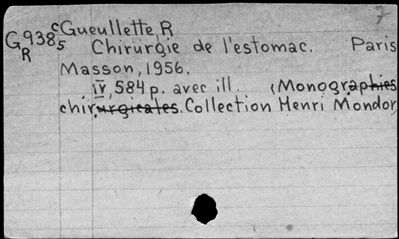 7
G938s cGueullette, R
R Chirurgie de l'estomac. Paris
Masson, 1956.
IV, 584 p. avec ill. (Monographies
chirurgicales. Collection Henri Mondor